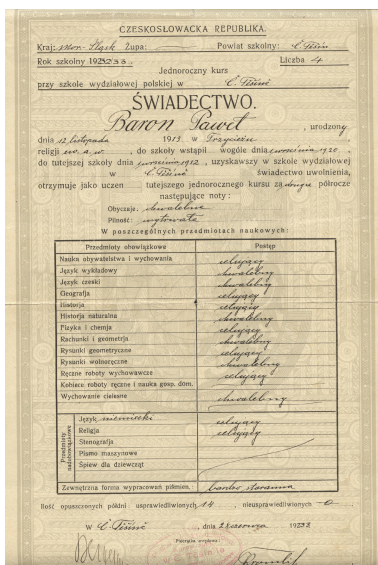 CZESKOSŁOWACKA REPUBLIKA.
Kraj: Mor. Śląsk Żupa: Powiat szkolny: Č. Těšín
Rok szkolny 192 Liczba 4
Jednoroczny kurs
przy szkole wydziałowej polskiej w Č. Těšíně
ŚWIADECTWO.
Baron Paweł, urodzony
dnia 12 listopada 1913 w Trzyńcu
religii ew. a. w., do szkoły wstąpił wogóle dnia września 1920,
do tutejszej szkoły dnia września, uzyskawszy w szkole wydziałowej
w Č. Těšíně świadectwo uwolnienia,
otrzymuje jako uczeń tutejszego jednorocznego kursu za drugie półrocze
następujące noty:
Obyczaje, chwalebne
Pilność: wytrwała
W poszczególnych przedmiotach naukowych:
Przedmioty obowiązkowe Postęp
Nauka obywatelstwa i wychowania celujący
Język wykładowy chwalebny
Język czeski chwalebny
Geografja celujący
Historja celujący
Historja naturalna chwalebny
Fizyka i chemja celujący
Rachunki i geometrja chwalebny
Rysunki geometryczne celujący
Rysunki wolnoręczne chwalebny
Ręczne roboty wychowawcze celujący
Kobiece roboty ręczne i nauka gosp. dom.
Wychowanie cielesne chwalebny
Przedmioty nadobowiązkowe
Język niemiecki celujący
Religja celujący
Stenografja
Pismo maszynowe
Śpiew dla dziewcząt
Zewnętrzna forma wypracowań piśmien.: bardzo staranna
Ilość opuszczonych półdni usprawiedliwionych 14, nieusprawiedliwionych 0
w Č. Těšíně, dnia czerwca 192